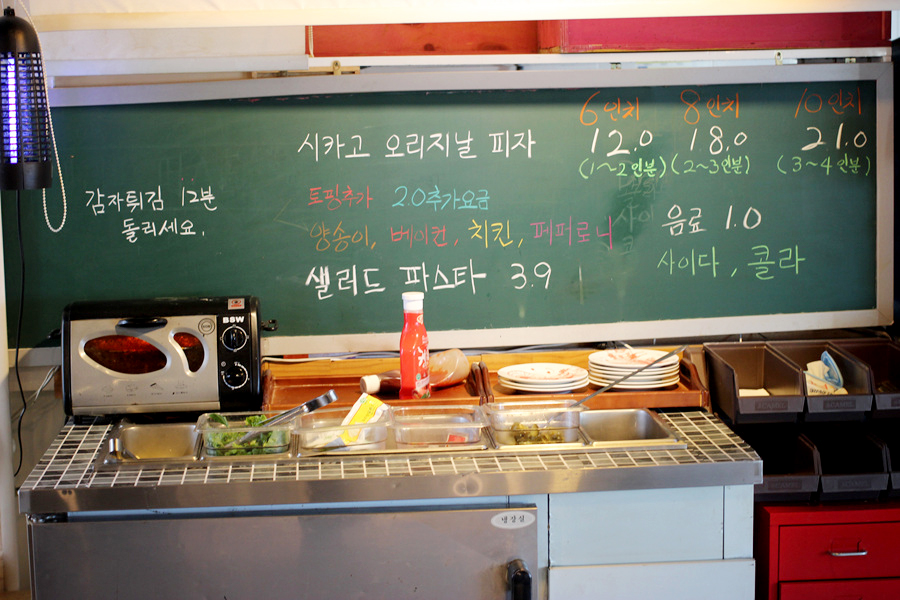 6인치 8인치 10인치
시카고 오리지날 피자 12.0 18.0 21.0
(1~2인분) (2~3인분) (3~4인분)
감자튀김 12분
돌리세요.
토핑추가 2.0추가요금
양송이, 베이컨, 치킨, 페퍼로니
샐러드 파스타 3.9
음료 1.0
사이다, 콜라
BSW
냉장실